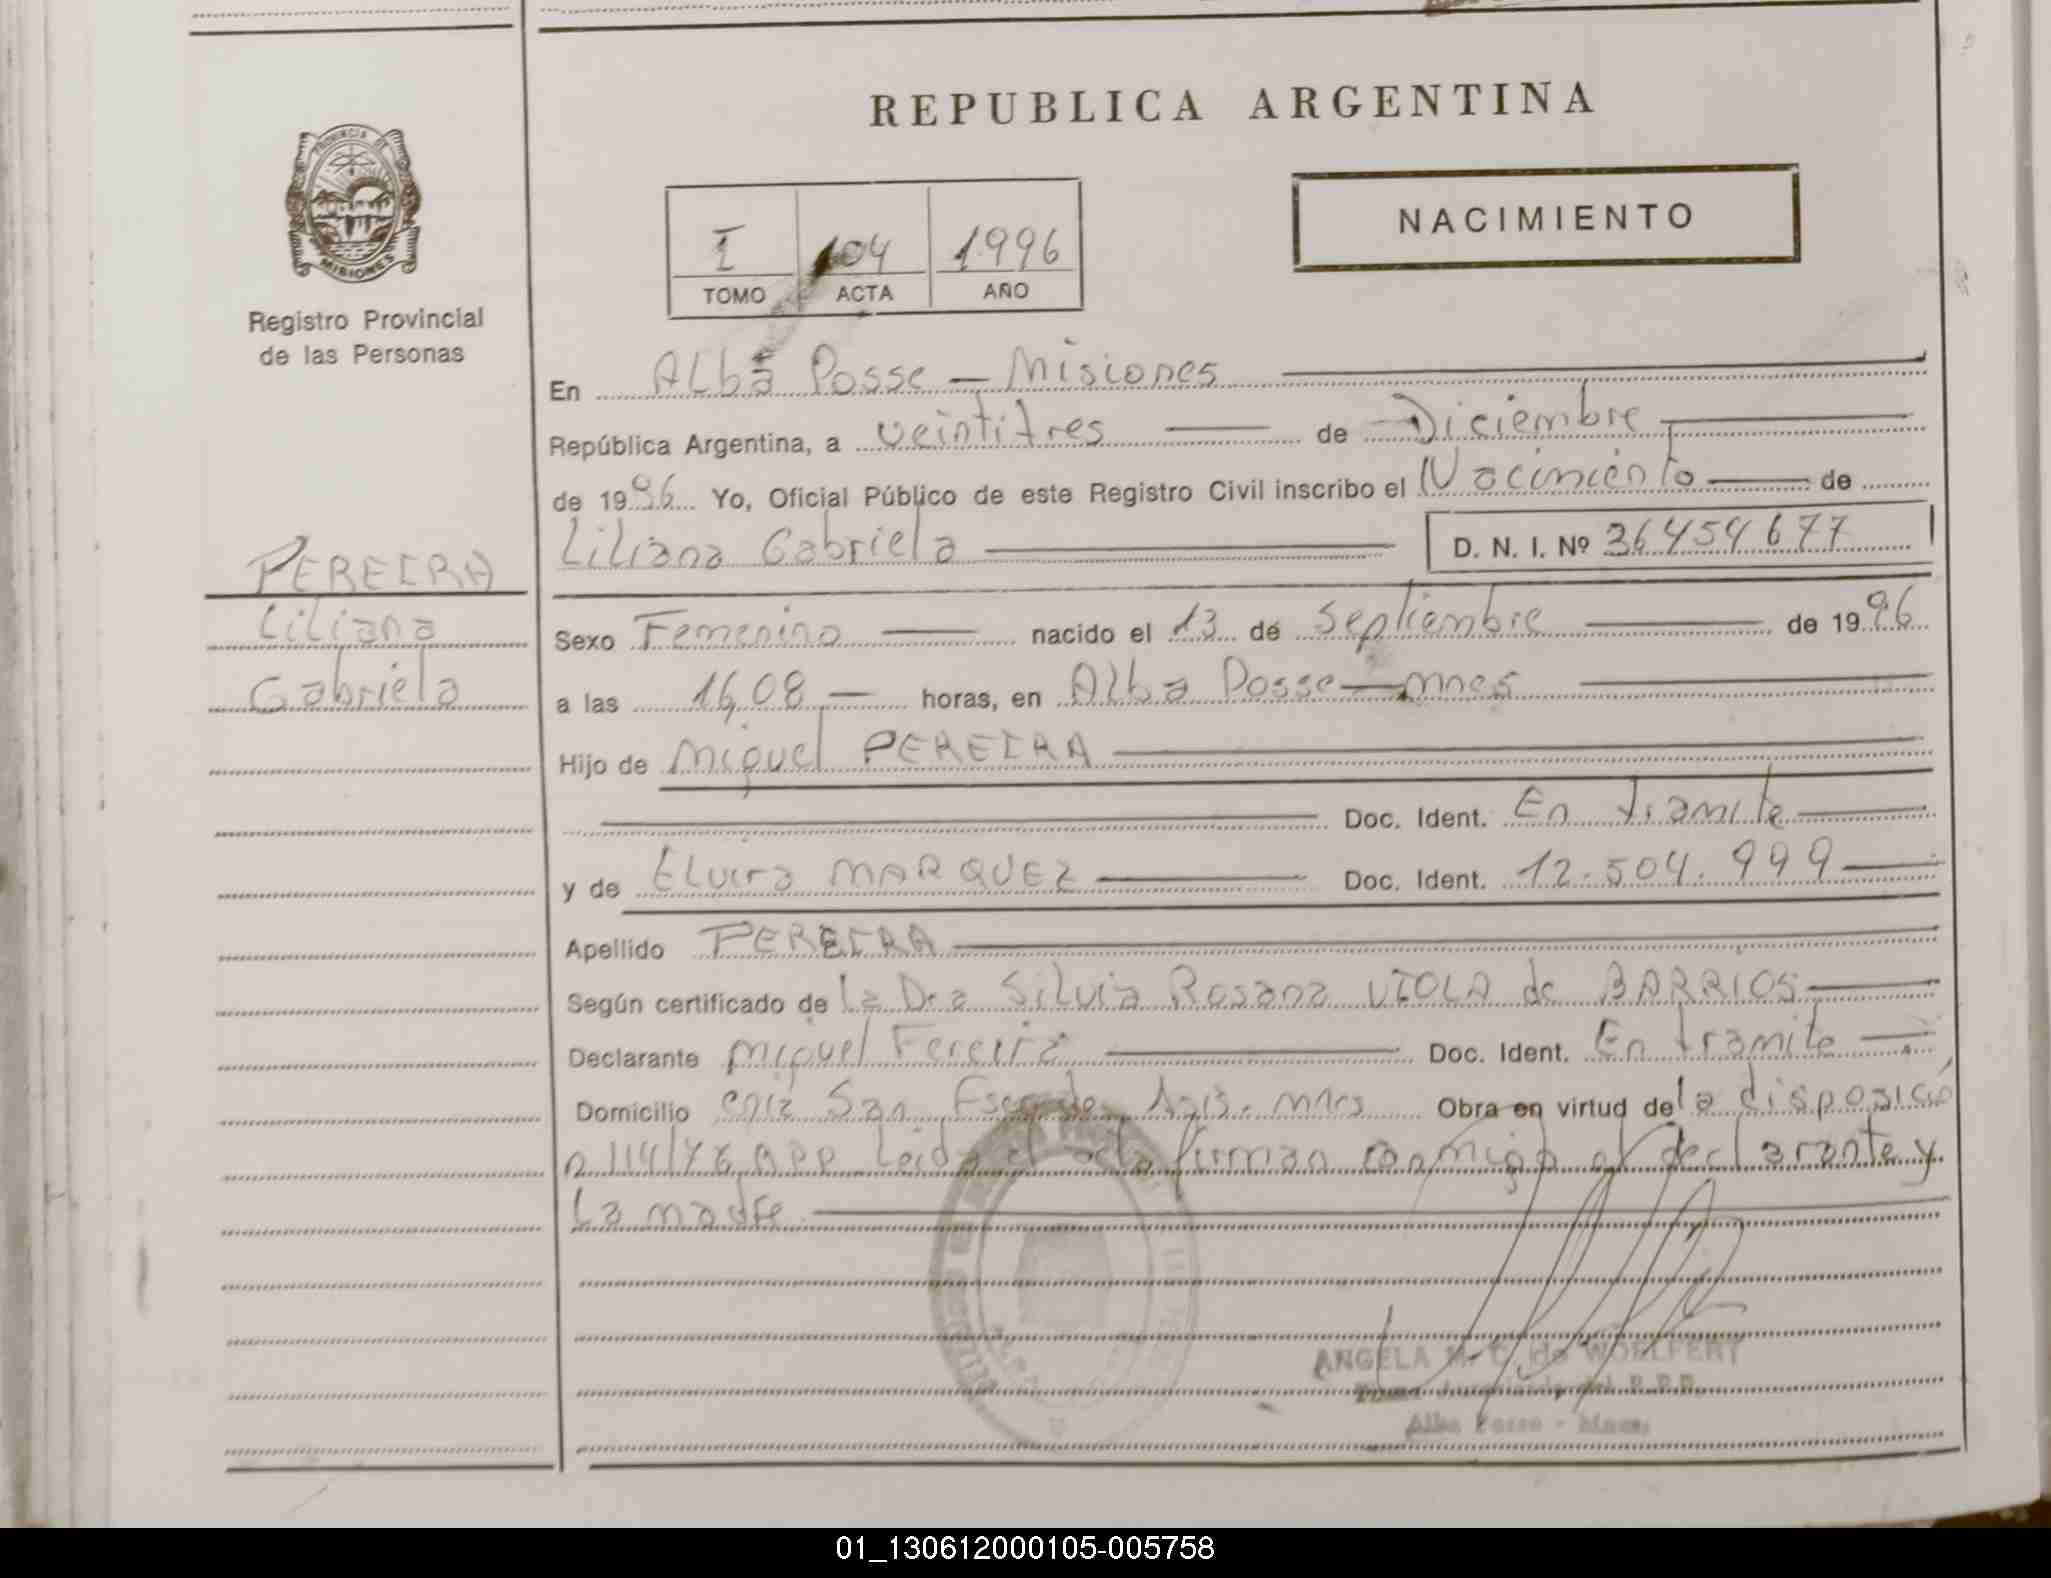 REPUBLICA ARGENTINA
PROVINCIA DE
MISIONES
Registro Provincial
de las Personas
NACIMIENTO
I 104 1996
TOMO ACTA AÑO
En Alba Posse - Misiones
República Argentina, a veintitres de Diciembre
de 1996 Yo, Oficial Público de este Registro Civil inscribo el Nacimiento de
Liliana Gabriela D. N. I. Nº 36454677
PEREIRA
Liliana
Gabriela
Sexo Femenino nacido el 13 de Septiembre de 1996
a las 16,08 horas, en Alba Posse - Mnes
Hijo de Miguel PEREIRA
Doc. Ident. En tramite
y de Elvira MARQUEZ Doc. Ident. 12.504.999
Apellido PEREIRA
Según certificado de la Dra Silvia Rosana VIOLA de BARRIOS
Declarante Miguel Fereira Doc. Ident. En tramite
Domicilio San Obra en virtud de la disposició
n 114/78 RPP Leida el acta firman conmigo el declarante y
La madre
ANGELA M. C. de WORLFERT
del R.P.P.
Alba Posse - Mnes.
01_130612000105-005758